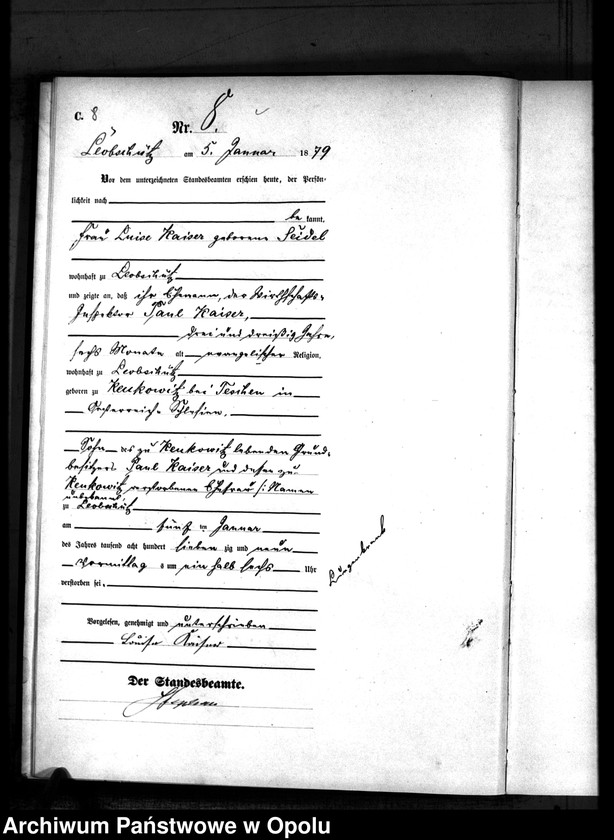 C. 8
Nr. 8.
Leobschütz am 5. Januar 1879
Vor dem unterzeichneten Standesbeamten erschien heute, der Persön-
lichkeit nach
be kannt,
Frau Luise Kaiser geborene Seidel
wohnhaft zu Leobschütz
und zeigte an, daß ihr Ehemann, der Wirthschafts-
Inspektor Paul Kaiser,
drei und dreißig Jahre,
sechs Monate alt evangelischer Religion,
wohnhaft zu Leobschütz
geboren zu Kenkowitz bei Teschen in
Oesterreich Schlesien,
Sohn des zu Kenkowitz lebenden Grund-
besitzers Paul Kaiser und dessen zu
Kenkowitz verstorbenen Ehefrau /: Namen
unbekannt
zu Leobschütz
am fünf ten Januar
des Jahres tausend acht hundert sieben zig und neun
Vormittag s um ein halb sechs Uhr
verstorben sei.
Vorgelesen, genehmigt und unterschrieben
Louise Kaiser
Der Standesbeamte.
Lungenbrand
Archiwum Państwowe w Opolu